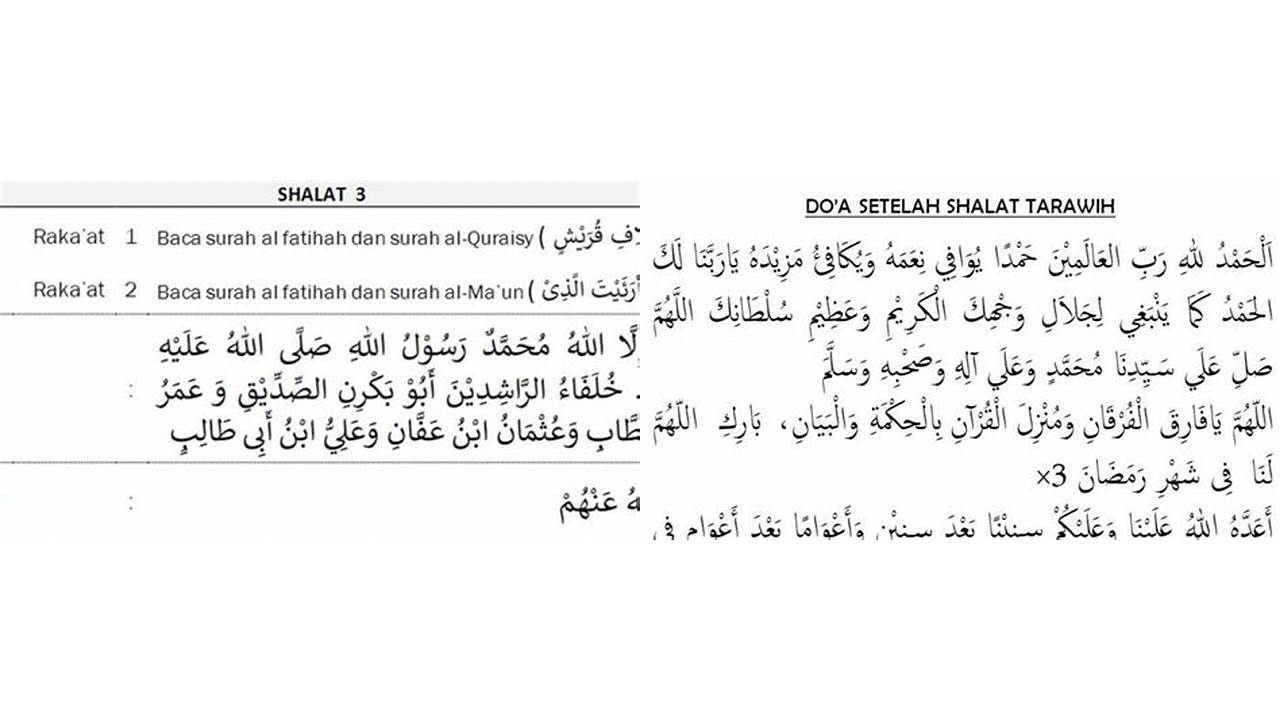 SHALAT 3
Raka'at 1 Baca surah al fatihah dan surah al-Quraisy ( قُرَيْشٍ
Raka'at 2 Baca surah al fatihah dan surah al-Ma'un ( أَرَئَيْتَ الَّذِىْ
اللهُ مُحَمَّدٌ رَسُوْلُ اللهِ صَلَّى اللهُ عَلَيْهِ
: خُلَفَاءُ الرَّاشِدِيْنَ أَبُوْ بَكْرِنِ الصِّدِّيْقِ وَ عَمَرُ
وَعُثْمَانُ ابْنُ عَفَّانِ وَعَلِيُّ ابْنُ أَبِى طَالِبٍ
: عَنْهُمْ
DO'A SETELAH SHALAT TARAWIH
اَلْحَمْدُ للهِ رَبِّ العَالَمِيْنَ حَمْدًا يُوَافِي نِعَمَهُ وَيُكَافِئُ مَزِيْدَهُ يَارَبَّنَا لَكَ
الحَمْدُ كَمَا يَنْبَغِي لِجَلاَلِ وَجْهِكَ الْكَرِيْمِ وَعَظِيْمِ سُلْطَانِكَ اللَّهُمَّ
صَلِّ عَلَي سَيِّدِنَا مُحَمَّدٍ وَعَلَي آلِهِ وَصَحْبِهِ وَسَلَّمَ
اللّهُمَّ يَافَارِقَ الْفُرْقَانِ وَمُنْزِلَ الْقُرْآنِ بِالْحِكْمَةِ وَالْبَيَانِ، بَارِكِ اللّهُمَّ
لَنَا فِى شَهْرِ رَمَضَانَ 3×
أَعَدَّهُ اللهُ عَلَيْنَا وَعَلَيْكُمْ سِنِيْنًا بَعْدَ سِنِيْنٍ وَأَعْوَامًا بَعْدَ أَعْوَامٍ فِى